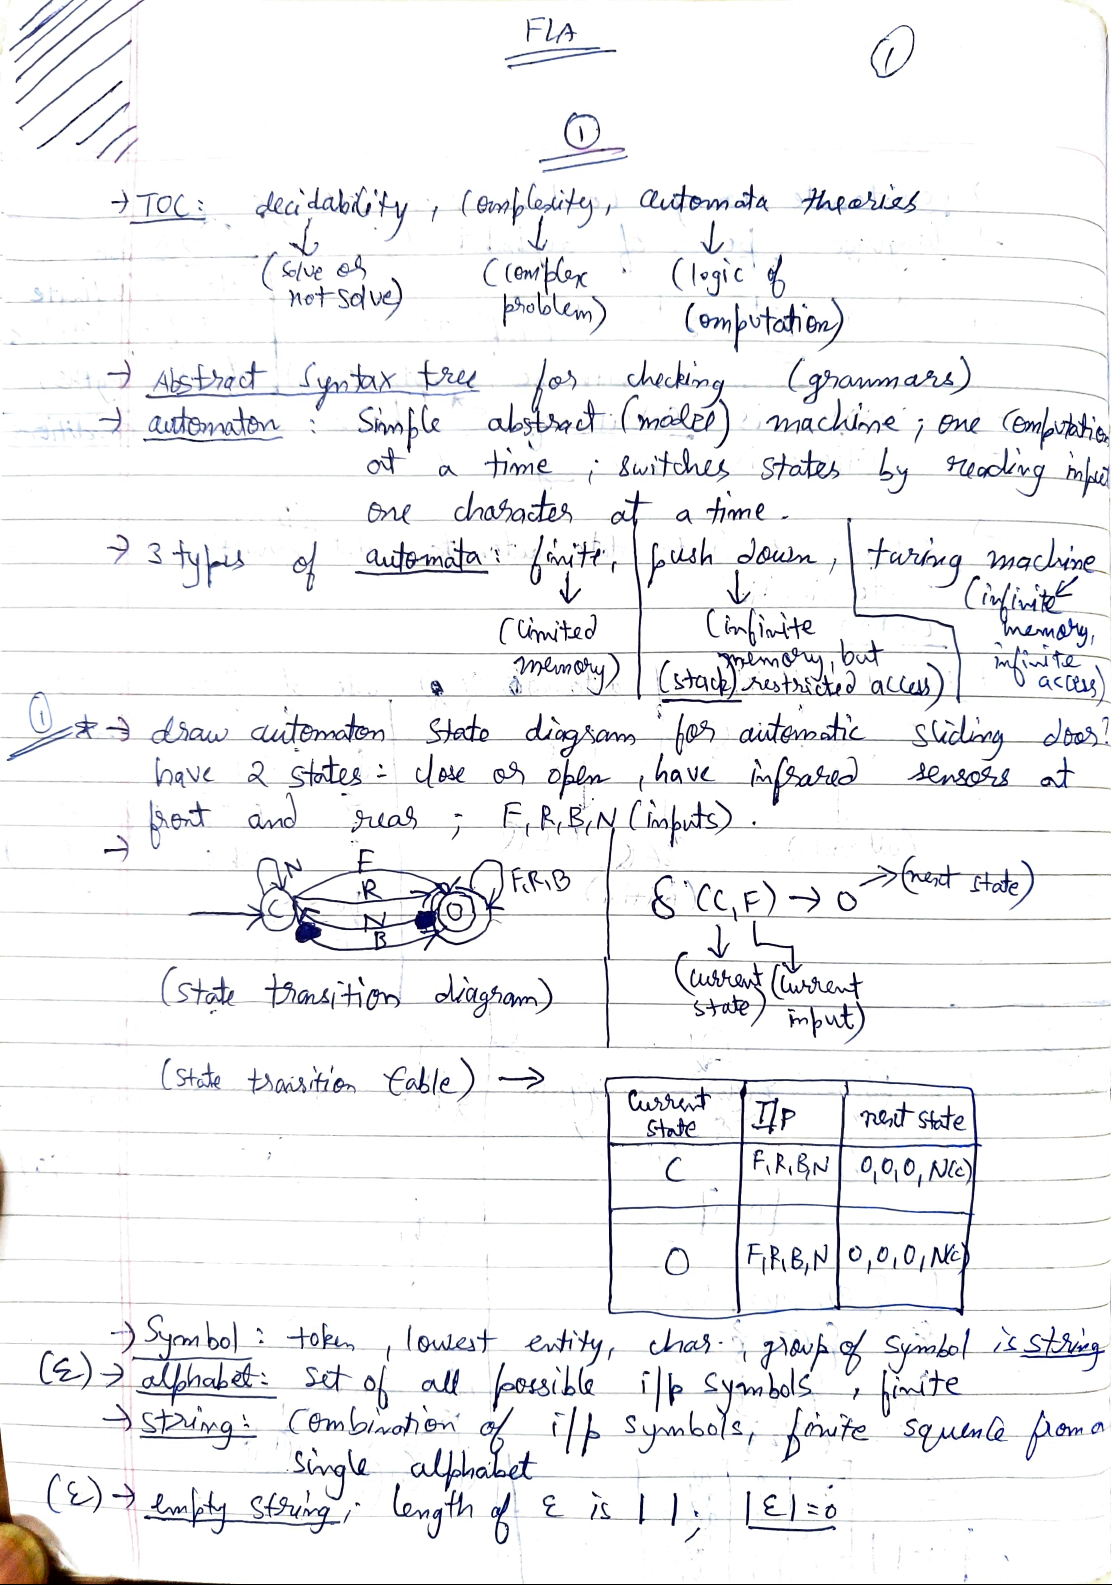 FLA
1
1
→ TOC: decidability, complexity, automata theories
↓ ↓ ↓
(solve or (complex (logic of
not solve) problem) computation)
→ Abstract Syntax tree for checking (grammars)
→ automaton : Simple abstract (model) machine ; one computation
at a time ; switches states by reading input
one character at a time.
→ 3 types of automata: finite, push down, turing machine
↓ ↓ ↙
(limited (infinite (infinite
memory) memory, but memory,
(stack) restricted access) infinite
access)
1 * → draw automaton state diagram for automatic sliding door?
have 2 states :- close or open, have infrared sensors at
front and rear ; F, R, B, N (inputs).
→
N F F,R,B
R
C N O
B
δ (C, F) → O → (next state)
↓ ↓
(current (current
state) input)
(state transition diagram)
(state trasition table) →
Current I/P next state
state
C F,R,B,N O,O,O,N(c)
O F,R,B,N O,O,O,N(c)
→ Symbol : token, lowest entity, char. ; group of symbol is string
(Σ) → alphabet: set of all possible i/p symbols, finite
→ string: Combination of i/p symbols, finite squence from a
single alphabet
(ε) → empty string ; length of ε is | | ; |ε|=0